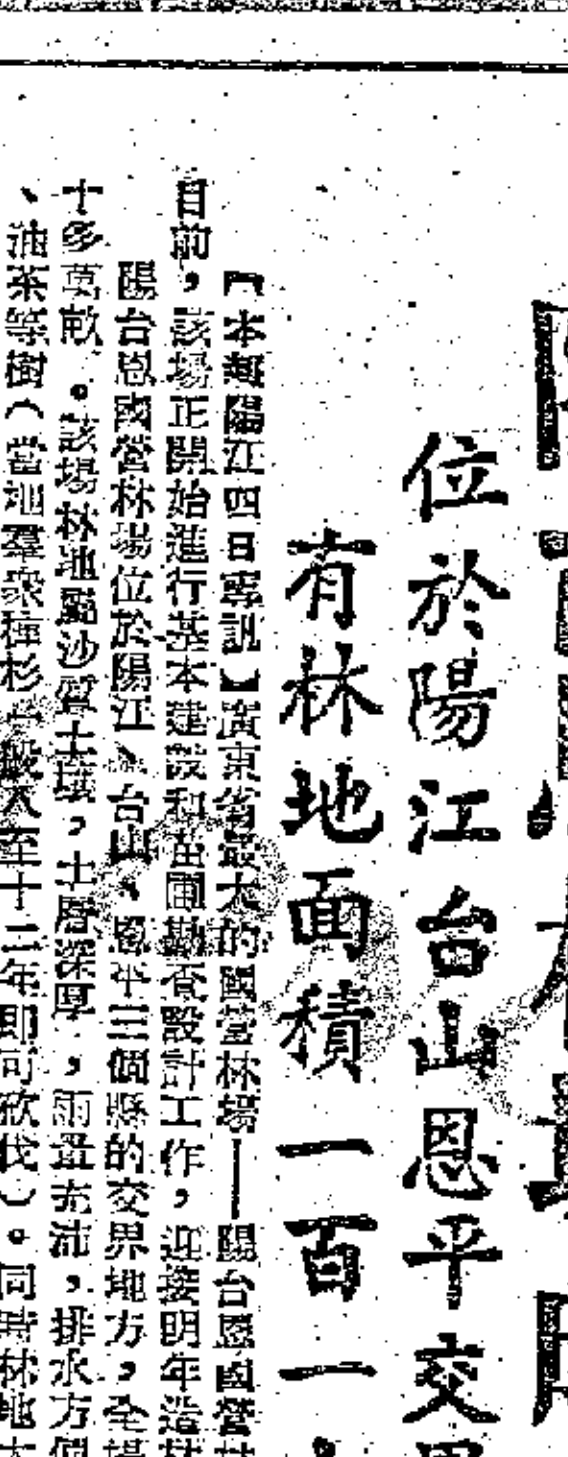 位於陽江台山恩平交界
有林地面積一百一十
【本報陽江四日專訊】廣東省最大的國營林場——陽台恩國營林
目前，該場正開始進行基本建設和苗圃勘查設計工作，迎接明年造林
陽台恩國營林場位於陽江、台山、恩平三個縣的交界地方，全場
十多萬畝。該場林地屬沙質土壤，土層深厚，雨量充沛，排水方便
、油茶等樹（當地羣衆種杉一般八至十二年即可砍伐）。同時林地大